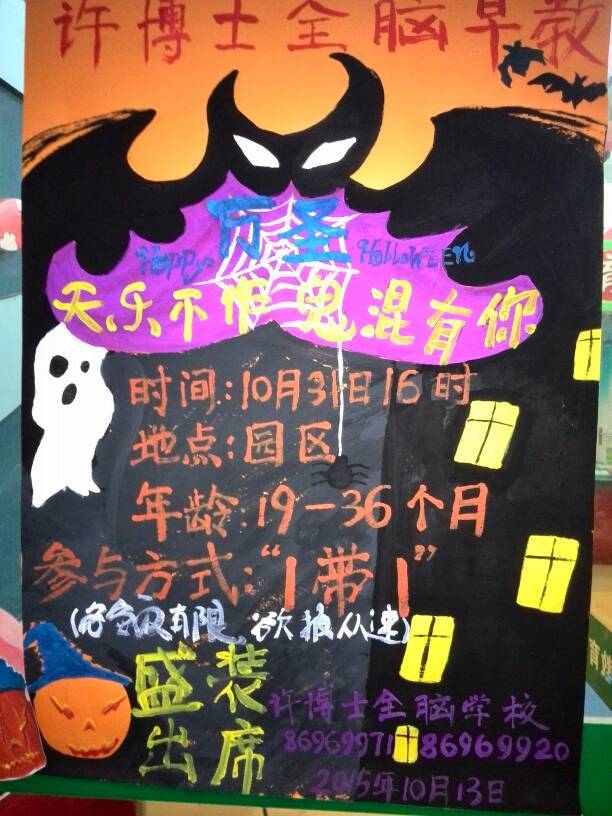 许博士全脑早教
Happy 万圣 HalloWEEN
天乐不作 鬼混有你
时间:10月31日16时
地点:园区
年龄:19-36个月
参与方式:“1带1”
(名额有限 欲报从速)
盛装
出席
许博士全脑学校
86969971 86969920
2015年10月13日